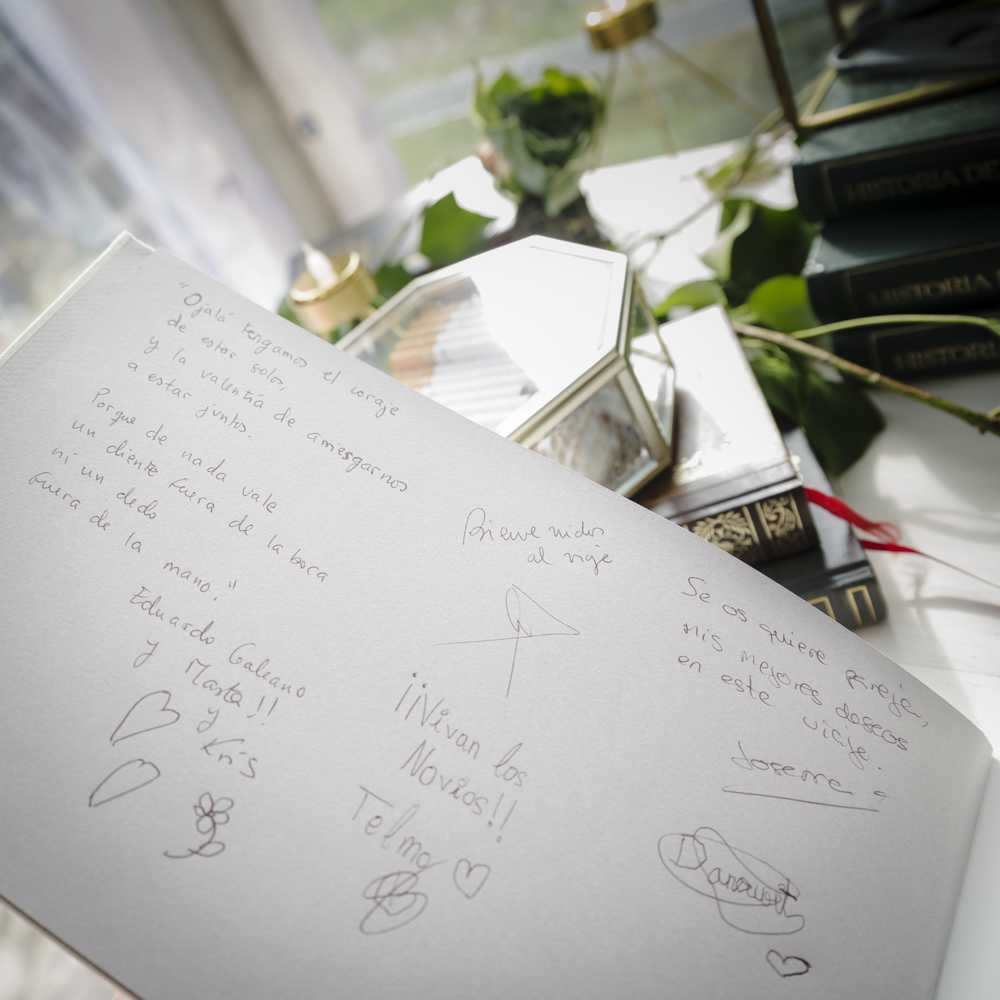 "Ojalá tengamos el coraje
de estar solos,
y la valentía de arriesgarnos
a estar juntos.
Porque de nada vale
un diente fuera de la boca
ni un dedo
fuera de la
mano."
Eduardo Galeano
y Marta!!
y
Kris
Bienvenidos
al viaje
¡¡Vivan los
Novios!!
Telmo
Se os quiere pareja,
mis mejores deseos
en este viaje.
HISTORIA DE
HISTORIA
HISTORI